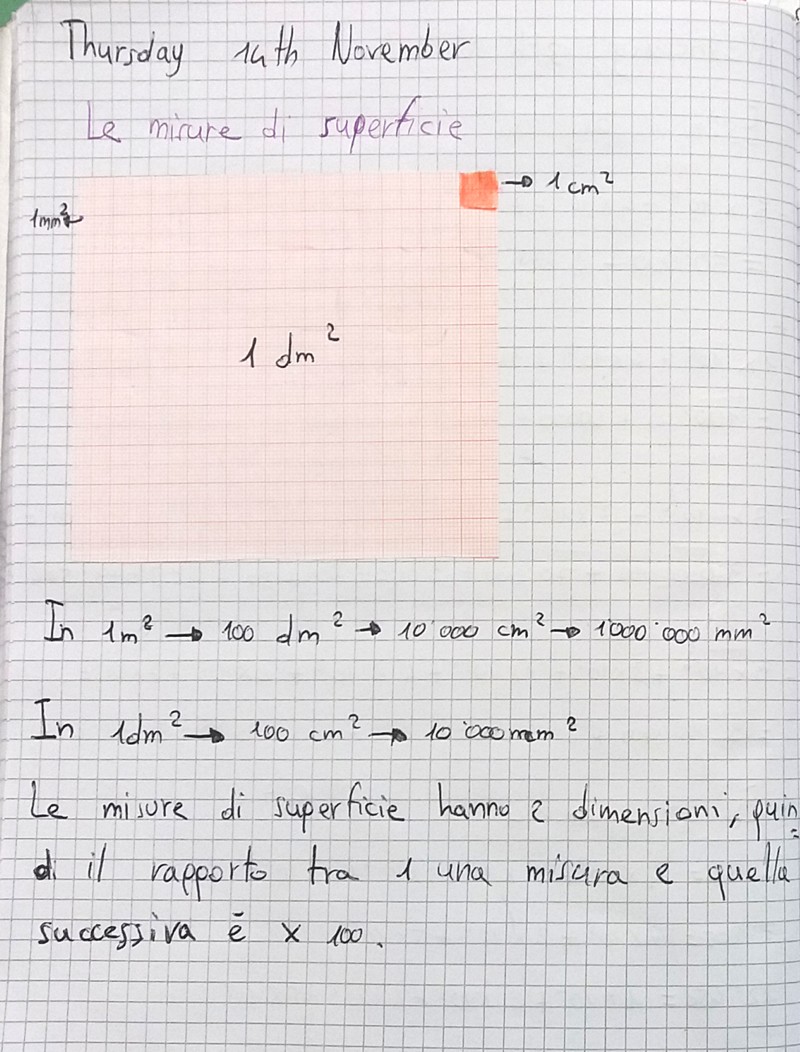 Thursday 14th November
Le misure di superficie
→ 1 cm²
1mm²
1 dm²
In 1m² → 100 dm² → 10˙000 cm² → 1˙000˙000 mm²
In 1dm² → 100 cm² → 10˙000 mm²
Le misure di superficie hanno 2 dimensioni, quin=
di il rapporto tra 1 una misura e quella
successiva è x 100.